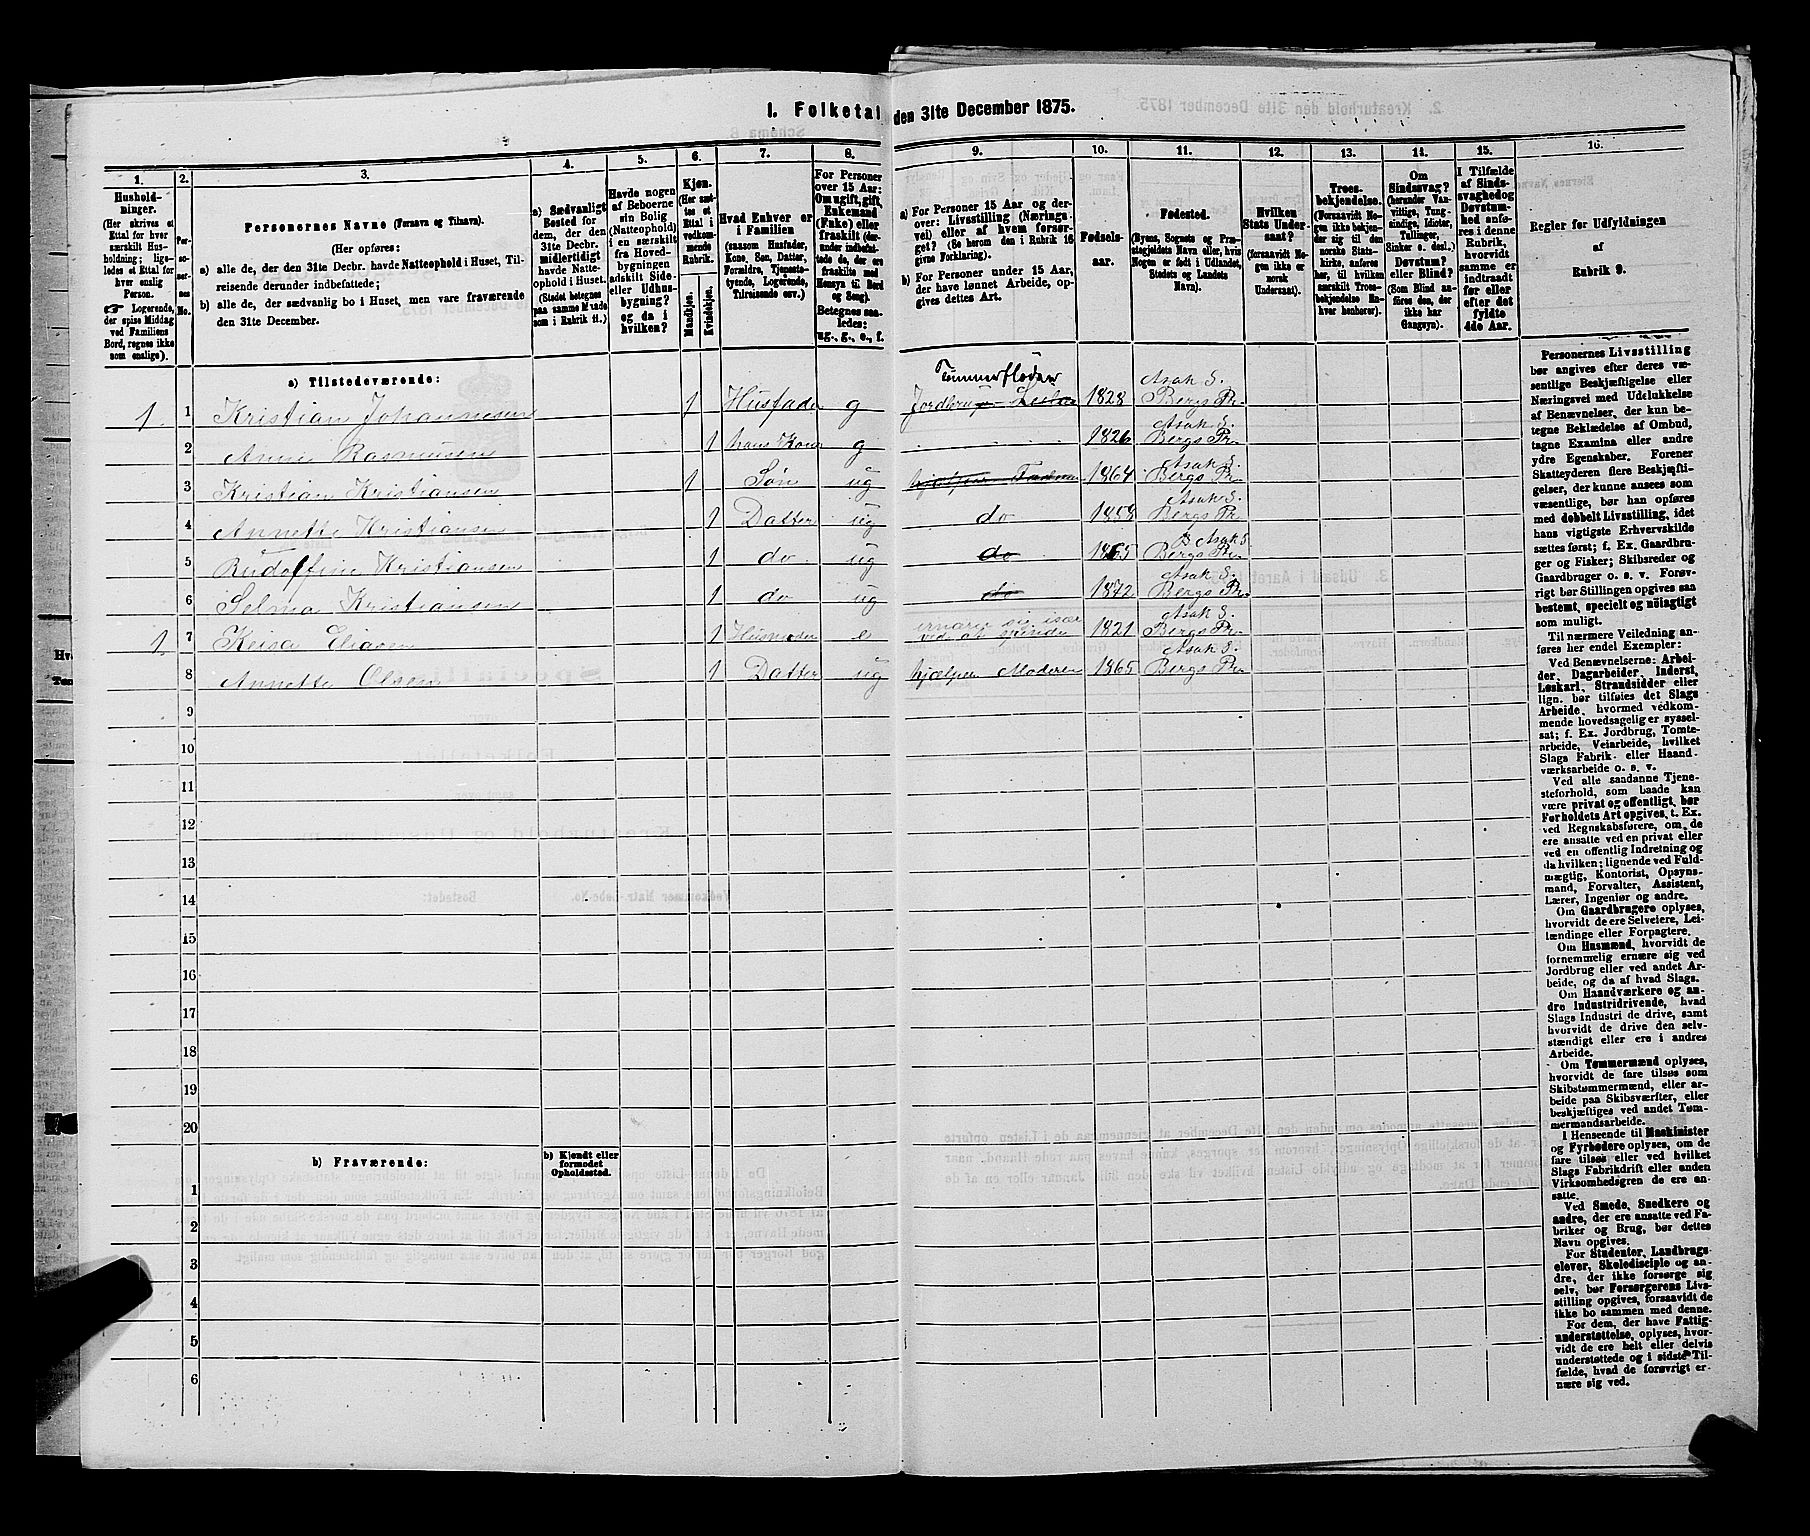 1. Folketal den 31te December 1875.
1. 2. 3. 4. 5. 6. 7. 8. 9. 10. 11. 12. 13. 14. 15. 16.
Hushold-
ninger.
(Her skrives et
Ettal for hver
særskilt Hus-
holdning; lige-
ledes et Ettal for
hver enslig
Person.
☞ Logerende,
der spise Middag
ved Familiens
Bord, regnes ikke
som enslige).
Per-
so-
ner-
nes
No.
Personernes Navne (Fornavn og Tilnavn).
(Her opføres:
a) alle de, der den 31te Decbr. havde Natteophold i Huset, Til-
reisende derunder indbefattede;
b) alle de, der sædvanlig bo i Huset, men vare fraværende
den 31te December.
a) Sædvanligt
Bosted for
dem, der den
31te Decbr.
midlertidigt
havde Natte-
ophold i Huset.
(Stedet betegnes
paa samme Maade
som i Rubrik 11.)
Havde nogen
af Beboerne
sin Bolig
(Natteophold)
i en særskilt
fra Hoved-
bygningen
adskilt Side-
eller Udhus-
bygning?
og da i
hvilken?
Kjøn.
(Her sæt-
tes et
Ettal i
vedkom-
mende
Rubrik.
Mandkjøn.
Kvindekjøn.
Hvad Enhver er
i Familien
(saasom Husfader,
Kone, Søn, Datter,
Forældre, Tjeneste-
tyende, Logerende,
Tilreisende osv.)
For Personer
over 15 Aar:
Om ugift, gift,
Enkemand
(Enke) eller
fraskilt (der-
under indbefat-
tede de, der ere
fraskilte med
Hensyn til Bord
og Seng).
Betegnes saa-
ledes:
ug., g., e., f.
a) For Personer 15 Aar og der-
over: Livsstilling (Nærings-
vei) eller af hvem forsør-
get? (Se herom den i Rubrik 16
givne Forklaring).
b) For Personer under 15 Aar,
der have lønnet Arbeide, op-
gives dettes Art.
Fødsels-
aar.
Fødested.
(Byens, Sognets og Præ-
stegjeldets Navn eller, hvis
Nogen er født i Udlandet,
Stedets og Landets
Navn).
Hvilken
Stats Under-
saat?
(forsaavidt No-
gen ikke er
norsk
Undersaat).
Troes-
bekjendelse.
(Forsaavidt No-
gen ikke bekjen-
der sig til den
norske Stats-
kirke, anføres
her, til hvilken
særskilt Troes-
bekjendelse En-
hver henhører).
Om
Sindssvag?
(herunder Van-
vittige, Tung-
sindige, Idioter,
Tullinger,
Sinker o. desl.)
Døvstum?
eller Blind?
(Som Blind an-
føres den, der
ikke har
Gangsyn).
I Tilfælde
af Sinds-
svaghed og
Døvstum-
hed anfø-
res i denne
Rubrik,
hvorvidt
samme er
indtraadt
før eller
efter det
fyldte
4de Aar.
Regler for Udfyldningen
af
Rubrik 9.
a) Tilstedeværende:
Tømmerfløder
Asak S.
1 1 Kristian Johannesen 1 Husfader g Jordbrug 1828 Bergs Pr.
Asak S.
2 Anne Rasmusen 1 hans Kone g 1826 Bergs Pr.
Asak S.
3 Kristian Kristiansen 1 Søn ug 1864 Bergs Pr.
Asak S.
4 Annette Kristiansen 1 Datter ug do 1858 Bergs Pr.
Asak S.
5 Rudolfine Kristiansen 1 do ug do 1865 Bergs Pr.
Asak S.
6 Selma Kristiansen 1 do ug do 1872 Bergs Pr.
ernærer sig især
Asak S.
1 7 Keisa Eliasen 1 Husmoder e ved at spinde 1821 Bergs Pr.
Asak S.
8 Annette Olsen 1 Datter ug hjælper Moderen 1865 Bergs Pr.
9
10
11
12
13
14
15
16
17
18
19
20
b) Fraværende:
b) Kjendt eller
formodet
Opholdssted.
1
2
3
4
5
6
Personernes Livsstilling
bør angives efter deres væ-
sentlige Beskjæftigelse eller
Næringsvei med Udelukkelse
af Benævnelser, der kun be-
tegne Beklædelse af Ombud,
tagne Examina eller andre
ydre Egenskaber. Forener
Skatteyderen flere Beskjæfti-
gelser, der kunne ansees som
væsentlige, bør han opføres
med dobbelt Livsstilling, idet
hans vigtigste Erhvervskilde
sættes først; f. Ex. Gaardbru-
ger og Fisker; Skibsreder og
Gaardbruger o. s. v. Forøv-
rigt bør Stillingen opgives saa
bestemt, specielt og nøiagtigt
som muligt.
Til nærmere Veiledning an-
føres her endel Exempler:
Ved Benævnelserne: Arbei-
der, Dagarbeider, Inderst,
Løskarl, Strandsidder eller
lign. bør tilføies det Slags
Arbeide, hvormed vedkom-
mende hovedsagelig er syssel-
sat; f. Ex. Jordbrug, Tomte-
arbeide, Veiarbeide, hvilket
Slags Fabrik- eller Haand-
værksarbeide o. s. v.
Ved alle saadanne Tjene-
steforhold, som baade kan
være privat og offentligt, bør
Forholdets Art opgives, t. Ex.
ved Regnskabsførere, om de
ere ansatte ved en privat eller
ved en offentlig Indretning og
da hvilken; lignende ved Fuld-
mægtig, Kontorist, Opsyns-
mand, Forvalter, Assistent,
Lærer, Ingeniør og andre.
Om Gaardbrugere oplyses,
hvorvidt de ere Selveiere, Lei-
lændinge eller Forpagtere.
Om Husmænd, hvorvidt de
fornemmelig ernære sig ved
Jordbrug eller ved andet Ar-
beide, og da af hvad Slags.
Om Haandværkere og an-
dre Industridrivende, hvad
Slags Industri de drive, samt
hvorvidt de drive den selv-
stændigt eller ere i andres
Arbeide.
Om Tømmermænd oplyses,
hvorvidt de fare tilsøs som
Skibstømmermænd, eller ar-
beide paa Skibsværfter, eller
beskjæftiges ved andet Tøm-
mermandsarbeide.
I Henseende til Maskinister
og Fyrbødere oplyses, om de
fare tilsøs eller ved hvilket
Slags Fabrikdrift eller anden
Virksomhedsgren de ere an-
satte.
Ved Smede, Snedkere og
andre, der ere ansatte ved Fa-
briker og Brug, bør dettes
Navn opgives.
For Studenter, Landbrugs-
elever, Skoledisciple og an-
dre, der ikke forsørge sig
selv, bør Forsørgerens Livs-
stilling opgives, forsaavidt de
ikke bo sammen med denne.
For dem, der have Fattig-
understøttelse, oplyses, hvor-
vidt de ere helt eller delvis
understøttede og i sidste Til-
fælde, hvad de forøvrigt er-
nære sig ved.